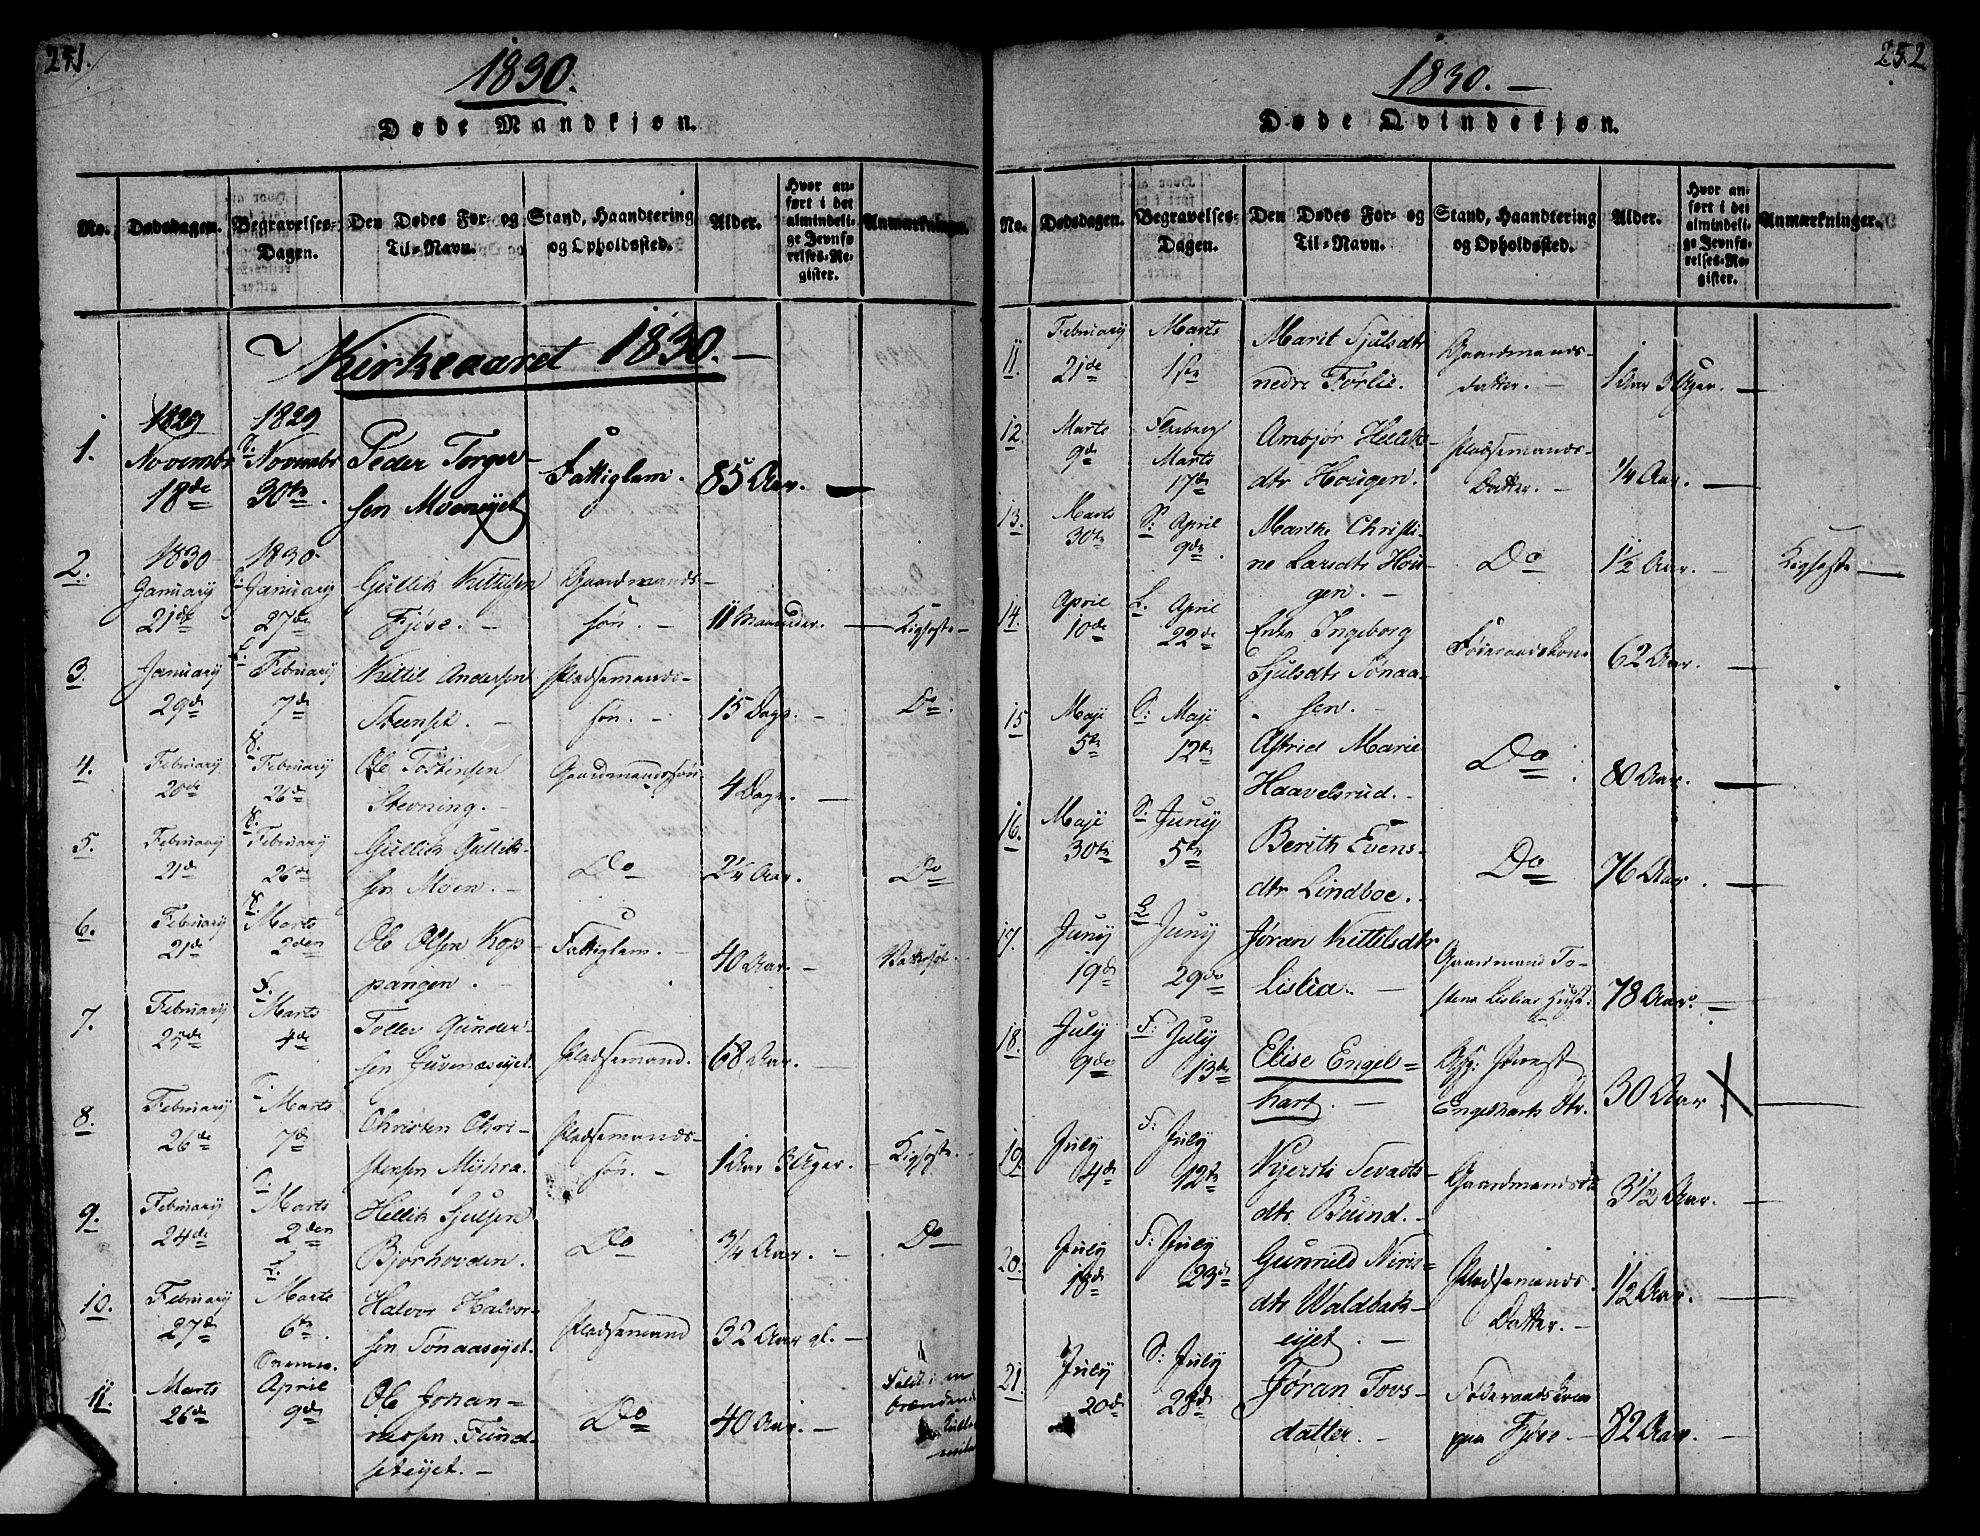 251.
1830.
Døde Mandkjøn.
No.
Dødsdagen.
Begravelses-
Dagen.
Den Dødes For- og
Til-Navn.
Stand, Haandtering
og Opholdssted.
Alder.
Hvor an-
ført i det
almindeli-
ge Jevnfø-
relses-Re-
gister.
Anmærkninger.
Kirkeaaret 1830. —
1.
1829
Novembr
18de
1829
Novembr
30te.
Peder Torger-
sen Moeneiet
Fattiglem.
85 Aar. —
2.
1830
January
21de
1830
January
27de
Gullik Kittilsen
Fjøse. —
Gaardmands-
søn. —
11 Maaneder. —
Kighoste —
3.
January
29de
L: February
7de
Kittil Andersen
Steenset. —
Pladsemands-
søn. —
15 Dage. —
Do.
4.
February
20de
S. February
26de
Ole Tostensen
Stevning. —
Gaardmandssøn
4 Dage. —
5.
February
21de
S. February
26de
Gullik Gullik-
sen Moen. —
Do
2¼ Aar.
Do
6.
February
21de
S. Marts
2den
Ole Olsen Kop-
pangen. —
Fattiglem. —
40 Aar. —
7.
February
25de
F. Marts
4de
Toller Gunder-
sen Juvenæseiet.
Pladsemand.
68 Aar. —
8.
February
26de
Marts
7de
Christen Chri-
stensen Myhra.
Pladsemands-
søn. —
1 Aar 3 Uger. —
Kighoste. —
9.
February
24de
Marts
2den
Hellik Sjulsen
Bjørhovden.
Do
¾ Aar. —
Do
10.
February
27de
L. Marts
6te
Halvor Halvor-
sen Sønaaseiet.
Pladsemand
32 Aar gl. —
11.
Marts
26de
April
9de
Ole Johan-
nessen Fund-
seteiet. —
Do
40 Aar. —
Faldt i en
brændende
Kulle
mile
252
1830. —
Døde Qvindekjøn.
No.
Dødsdagen.
Begravelses-
Dagen.
Den Dødes For- og
Til-Navn.
Stand, Haandtering
og Opholdssted.
Alder.
Hvor an-
ført i det
almindeli-
ge Jevnfø-
relses-Re-
gister.
Anmærkninger.
11.
February
21de
Marts
1ste
Marit Sjulsdtr
nedre Førlie.
Gaardmands-
datter. —
1 Aar 3 Uger. —
12.
Marts
9de
Flesberg
Marts
17de
Ambjør Hellik-
dtr Hougen.
Pladsemands-
Datter. —
¼ Aar. —
13.
Marts
30te
S: April
9de
Marthe Christi-
ne Larsdtr Hou-
gen. —
Do
1½ Aar. —
Kighoste —
14.
April
10de
L. April
22de
Enke Ingeborg
Sjulsdtr Sønaa-
sen. —
Føderaadskone
62 Aar. —
15
Maji
5te
S: Maji
12te
Astrid Marie
Haavelsrud. —
Do
80 Aar. —
16.
Maji
30te
S: Juny
5te
Berith Evens-
dtr Lindboe. —
Do
76 Aar. —
17.
Juny
19de
L Juny
29de
Jøran Kittelsdtr
Lislia. —
Gaardmand To-
stens Lislias Hust:
78 Aar. —
18.
July
9de
F: July
13de
Elise Engel=
hart. —
Engelharts Dtr.
30 Aar X —
19.
July
4de
F: July
12te
Kjersti Sevats-
dtr. Buind. —
Gaardmandsdtr
3½ Aar. —
20.
July
18de
F: July
23de
Gunnild Niris-
dtr Waldbæk-
eyet. —
Pladsemands
Datter. —
1½ Aar. —
21.
July
20de
S: July
28de
Jøran Tovs-
datter. —
Føderaadskone
paa Fjøse. —
82 Aar. —